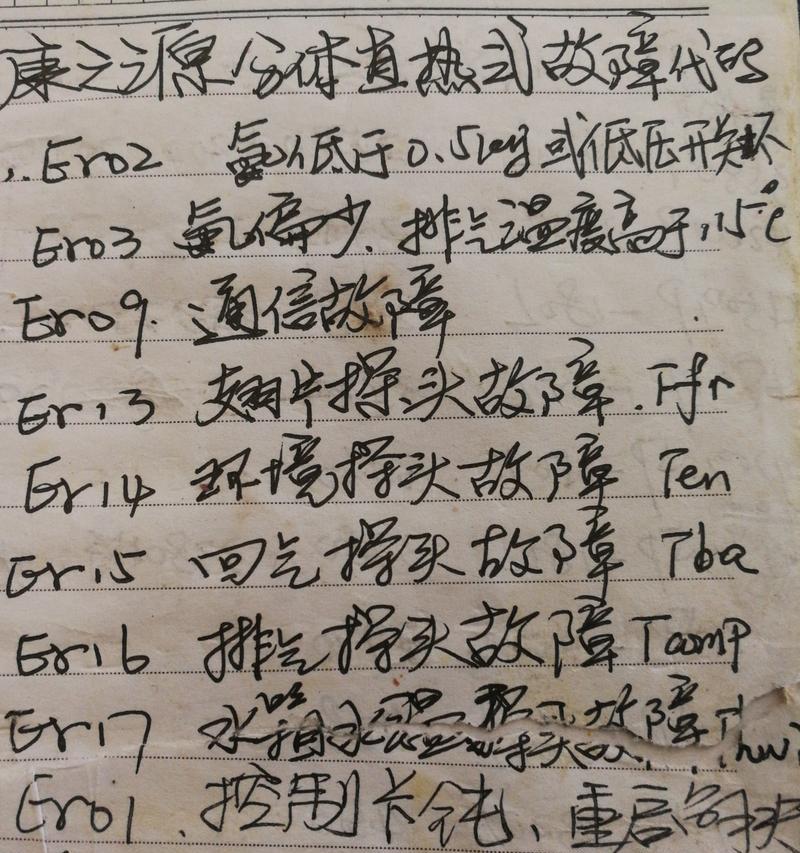 康之源分体直热式故障代码
Er02 氟低于0.5kg或低压开关坏
Er03 氟偏少.排气温度高于115℃
Er09.通信故障
Er13 翅片探头故障.Tfr
Er14 环境探头故障 Ten
Er15 回气探头故障 Tba
Er16 排气探头故障 Tcomp
Er17 水箱水温探头故障
Er01、控制卡钝、重启